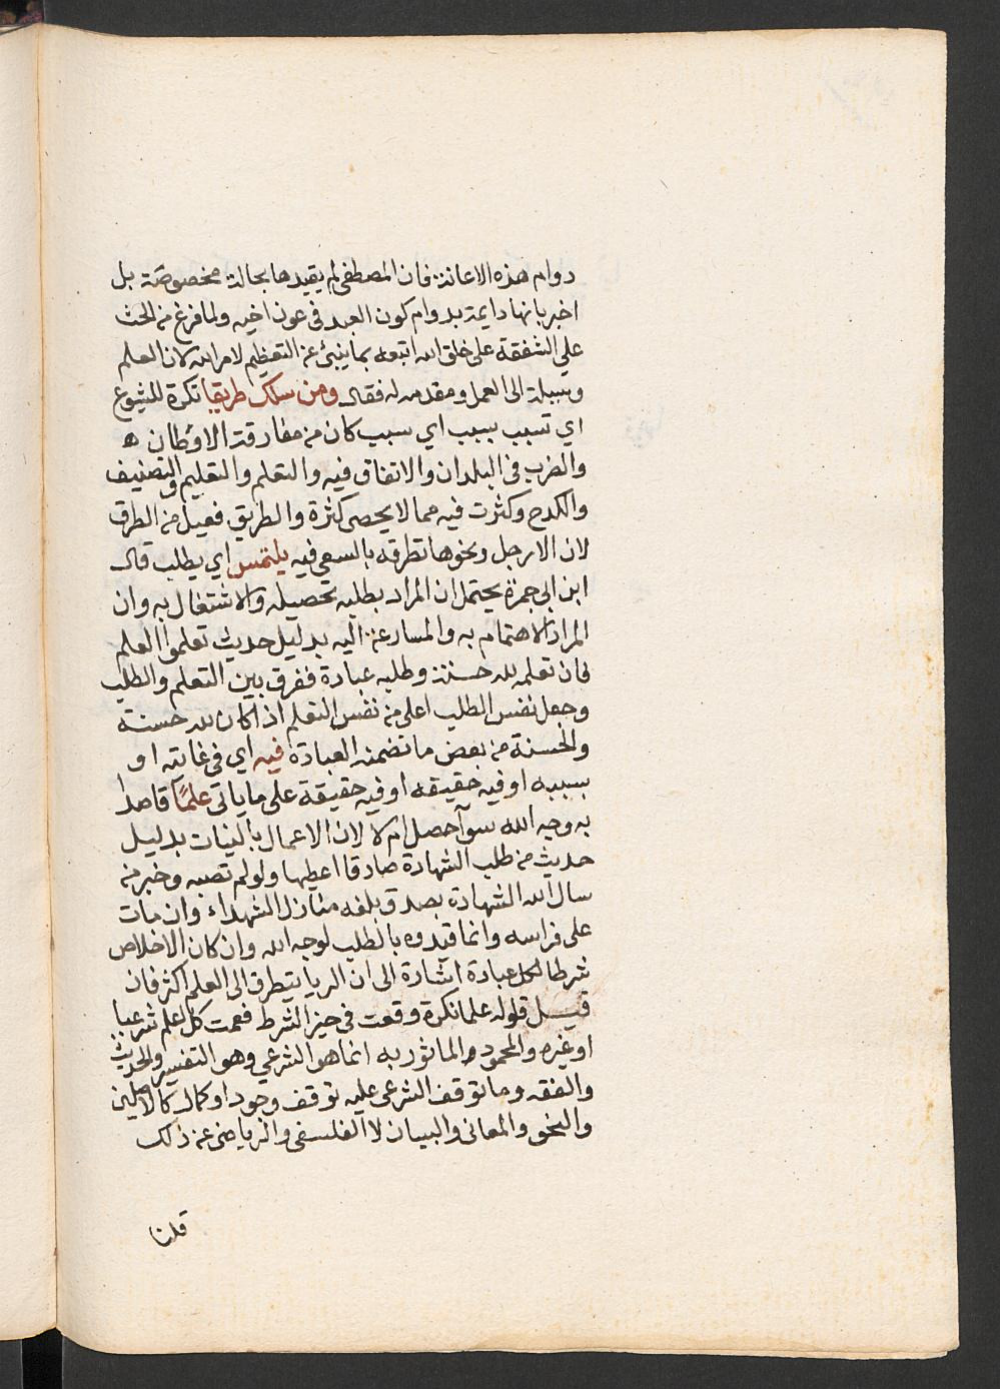 دوام هذه الاعانة فان المصطفى لم يقيدها بحالة مخصوصة بل
اخبر بانها دايمة بدوام كون العبد في عون اخيه ولما فرغ من الحث
علي الشفقة على خلق الله اتبعه بما ينبئ عن التعظيم لامر الله لان العلم
وسيلة الى العمل ومقدمة له فقال ومن سلك طريقا نكرة للشيوع
اي تسبب بسبب اي سبب كان من مفارقة الاوطان
والضرب في البلدان والانفاق فيه والتعلم والتعليم والتصنيف
والكدح وكثرت فيه مما لا يحصى كثرة والطريق فعيل من الطرق
لان الارجل ونحوها تطرقه بالسعي فيه يلتمس اي يطلب قال
ابن ابي جمرة يحتمل ان المراد بطلبه تحصيله والاشتغال به وان
المراد الاهتمام به والمسارعة اليه بدليل حديث تعلموا العلم
فان تعلمه لله حسنة وطلبه عبادة ففرق بين التعلم والطلب
وجعل نفس الطلب اعلى من نفس التعلم اذا كان لله حسنة
والحسنة من بعض ما تضمنه العبادة فيه اي في غايته او
بسببه او فيه حقيقه او فيه حقيقة على ما ياتي علمًا قاصدا
به وجه الله سوآ حصل ام لا لان الاعمال بالنيات بدليل
حديث من طلب الشهادة صادقا اعطيها ولو لم تصبه وخبر من
سال الله الشهادة بصدق بلغه منازل الشهداء وان مات
على فراسه وانما قيدوه بالطلب لوجه الله وان كان الاخلاص
شرطا لكل عبادة اشارة الى ان الريا يتطرق الى العلم اكثر فان
قيل قوله علما نكرة وقعت في حيز الشرط فعمت كل علم شرعيا
او غيره والمحمود والماثور به انما هو الشرعي وهو التفسير والحديث
والفقه وما توقف الشرعي عليه توقف وجود او كمال كالاصلين
والنحو والمعاني والبيان لا الفلسفي والرياضي عن ذلك
قلنا